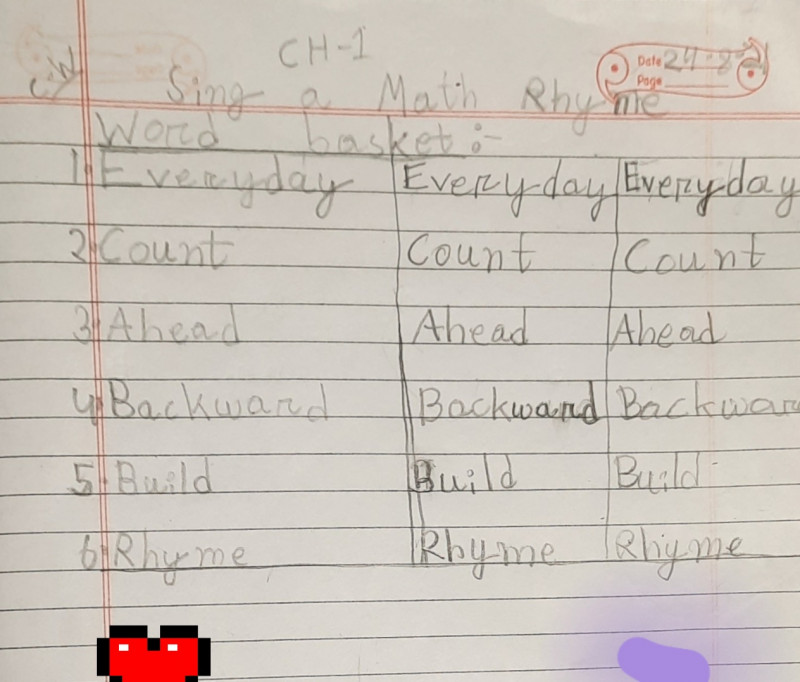 CH-1
CW
Date 24-8-21
Page
Sing a Math Rhyme
Word basket :-
1 Everyday Everyday Everyday
2 Count Count Count
3 Ahead Ahead Ahead
4 Backward Backward Backwar
5 Build Build Build
6 Rhyme Rhyme Rhyme